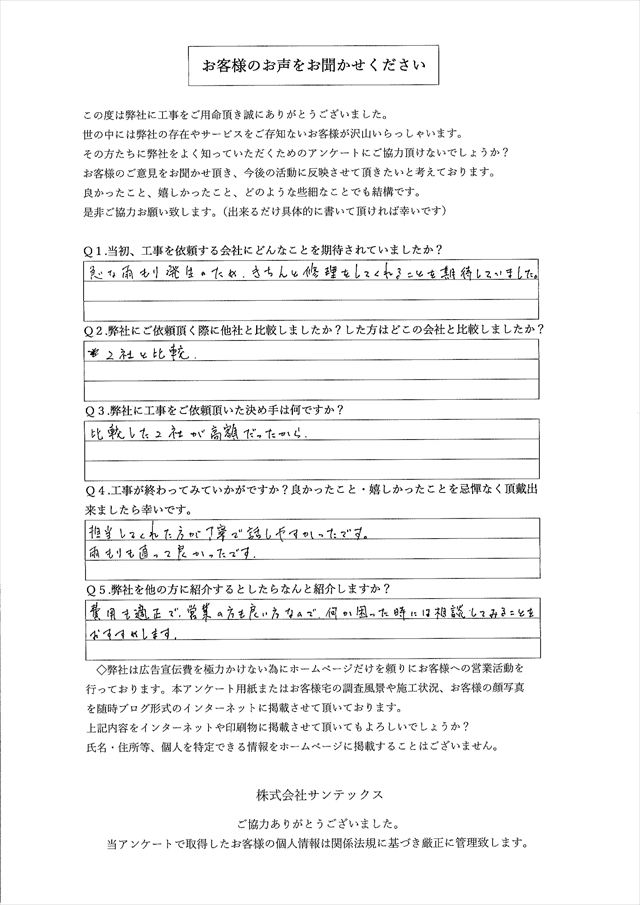 お客様のお声をお聞かせください
この度は弊社に工事をご用命頂き誠にありがとうございました。
世の中には弊社の存在やサービスをご存知ないお客様が沢山いらっしゃいます。
その方たちに弊社をよく知っていただくためのアンケートにご協力頂けないでしょうか？
お客様のご意見をお聞かせ頂き、今後の活動に反映させて頂きたいと考えております。
良かったこと、嬉しかったこと、どのような些細なことでも結構です。
是非ご協力お願い致します。（出来るだけ具体的に書いて頂ければ幸いです）
Ｑ１.当初、工事を依頼する会社にどんなことを期待されていましたか？
急な雨もり発生のため、きちんと修理をしてくれることを期待していました。
Ｑ２.弊社にご依頼頂く際に他社と比較しましたか？した方はどこの会社と比較しましたか？
＊２社と比較.
Ｑ３.弊社に工事をご依頼頂いた決め手は何ですか？
比較した２社が高額だったから.
Ｑ４.工事が終わってみていかがですか？良かったこと・嬉しかったことを忌憚なく頂戴出
来ましたら幸いです。
担当してくれた方が丁寧で話しやすかったです。
雨もりも直って良かったです.
Ｑ５.弊社を他の方に紹介するとしたらなんと紹介しますか？
費用も適正で、営業の方も良い方なので、何か困った時には相談してみることを
おすすめします.
◇弊社は広告宣伝費を極力かけない為にホームページだけを頼りにお客様への営業活動を
行っております。本アンケート用紙またはお客様宅の調査風景や施工状況、お客様の顔写真
を随時ブログ形式のインターネットに掲載させて頂いております。
上記内容をインターネットや印刷物に掲載させて頂いてもよろしいでしょうか？
氏名・住所等、個人を特定できる情報をホームページに掲載することはございません。
株式会社サンテックス
ご協力ありがとうございました。
当アンケートで取得したお客様の個人情報は関係法規に基づき厳正に管理致します。